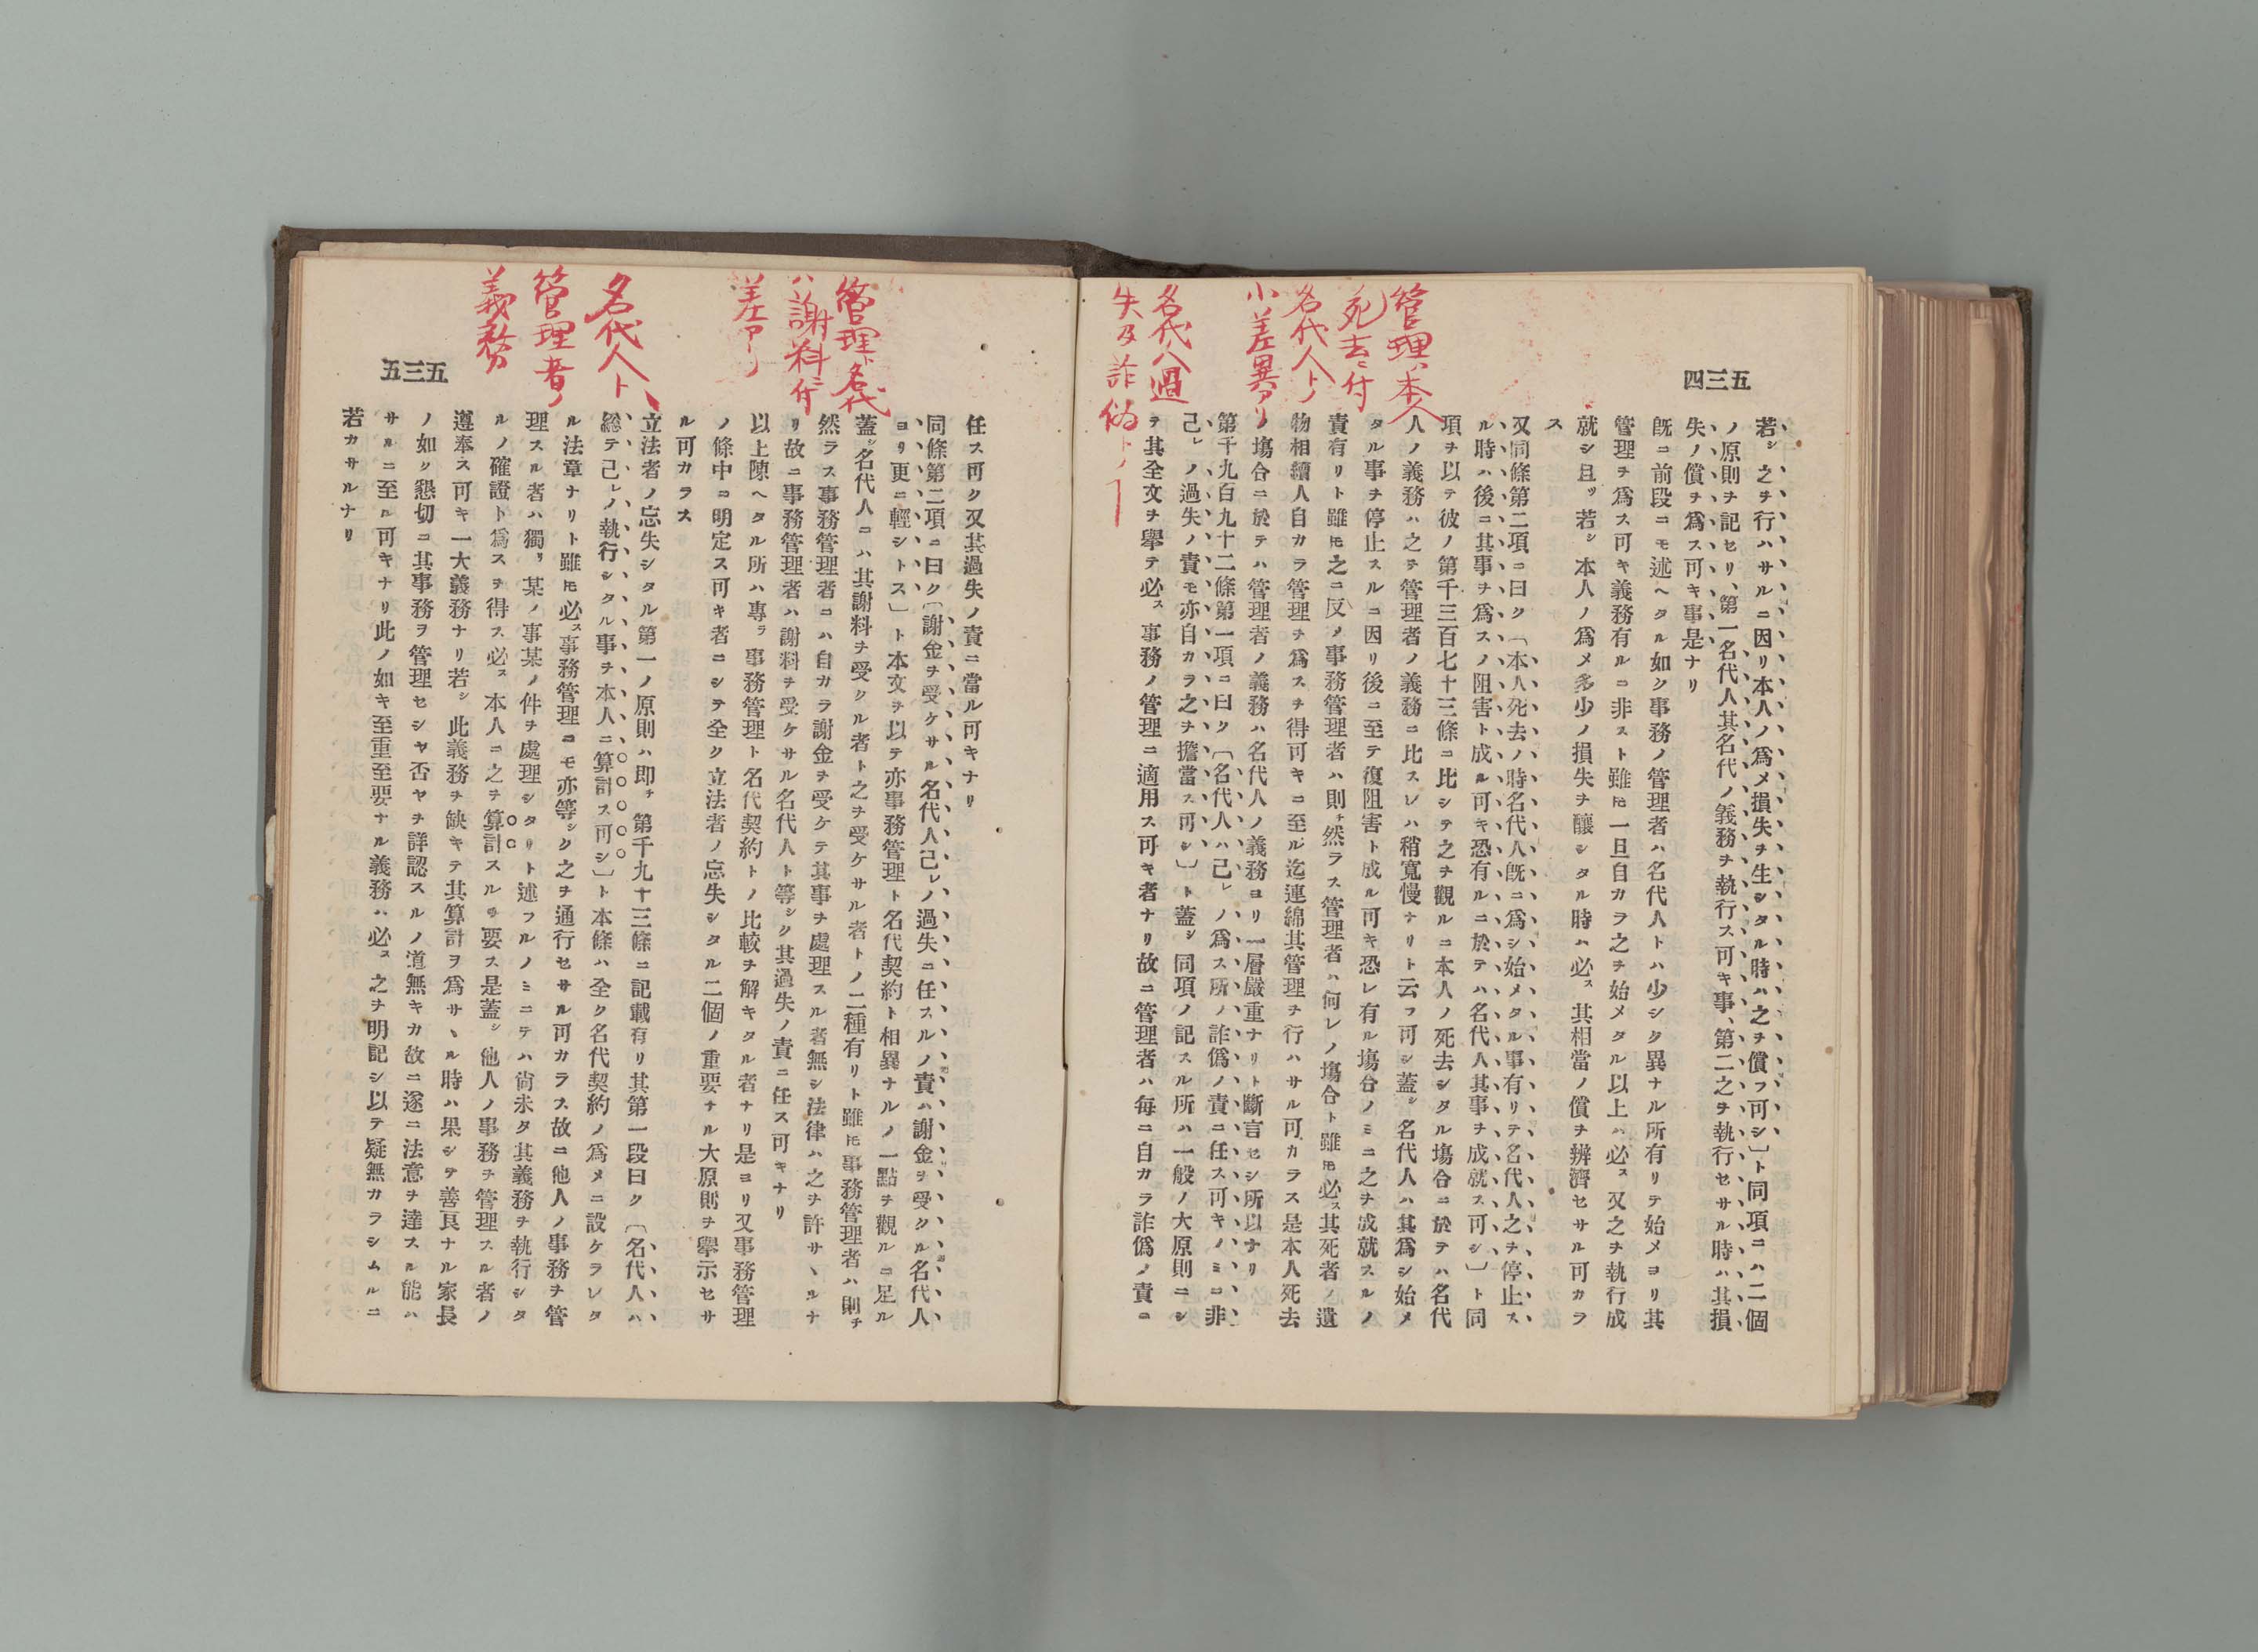 五三四
管理ハ本人
死去ニ付
名代人トノ
小差異アリ
名代人過
失及詐
偽トノ
若シ之ヲ行ハサルニ因リ本人ノ爲メ損失ヲ生シタル時ハ之ヲ償フ可シ〕ト同項ニハ二個
ノ原則ヲ記セリ、第一名代人其名代ノ義務ヲ執行ス可キ事、第二之ヲ執行セサル時ハ其損
失ノ償ヲ爲ス可キ事是ナリ
旣ニ前段ニモ述ヘタル如シ事務ノ管理者ハ名代人トハ少シク異ナル所有リテ始メヨリ其
管理ヲ爲ス可キ義務有ルニ非スト雖𪜈一旦自カラ之ヲ始メタル以上ハ必ス又之ヲ執行成
就シ且ツ若シ本人ノ爲メ多少ノ損失ヲ釀シタル時ハ必ス其相當ノ償ヲ辨濟セサル可カラ
ス
又同條第二項ニ曰ク〔本人死去ノ時名代人旣ニ爲シ始メタル事有リテ名代人之ヲ停止ス
ル時ハ後ニ其事ヲ爲スノ阻害ト成ル可キ恐有ルニ於テハ名代人其事ヲ成就ス可シ〕ト同
項ヲ以テ彼ノ第千三百七十三條ニ比シテ之ヲ觀ルニ本人ノ死去シタル塲合ニ於テハ名代
人ノ義務ハ之ヲ管理者ノ義務ニ比スレハ稍寬慢ナリト云フ可シ蓋シ名代人ハ其爲シ始メ
タル事ヲ停止スルニ因リ後ニ至テ復阻害ト成ル可キ恐レ有ル塲合ノミニ之ヲ成就スルノ
責有リト雖𪜈之ニ反メ事務管理者ハ則チ然ラス管理者ハ何レノ塲合ト雖𪜈必ス其死者ノ遺
物相續人自カラ管理ヲ爲スヲ得可キニ至ル迄連綿其管理ヲ行ハサル可カラス是本人死去
ノ塲合ニ於テハ管理者ノ義務ハ名代人ノ義務ヨリ一層嚴重ナリト斷言セシ所以ナリ
第千九百九十二條第一項ニ曰ク〔名代人ハ己レノ爲ス所ノ詐僞ノ責ニ任ス可キノミニ非
己レノ過失ノ責モ亦自カラ之ヲ擔當ス可シ〕ト蓋シ同項ノ記スル所ハ一般ノ大原則ニシ
テ其全文ヲ擧テ必ス事務ノ管理ニ適用ス可キ者ナリ故ニ管理者ハ每ニ自カラ詐僞ノ責ニ
五三五
管理ト名代
ハ謝料ニ付
差アリ
名代人ト
管理者ノ
義務
任ス可ク又其過失ノ責ニ當ル可キナリ
同條第二項ニ曰ク〔謝金ヲ受ケサル名代人己レノ過失ニ任スルノ責ハ謝金ヲ受クル名代人
ヨリ更ニ輕シトス〕ト本文ヲ以テ亦事務管理ト名代契約ト相異ナルノ一點ヲ觀ルニ足ル
蓋シ名代人ニハ其謝料ヲ受クル者ト之ヲ受ケサル者トノ二種有リト雖𪜈事務管理者ハ則チ
然ラス事務管理者ニハ自カラ謝金ヲ受ケテ其事ヲ處理スル者無シ法律ハ之ヲ許サヽルナ
リ故ニ事務管理者ハ謝料ヲ受ケサル名代人ト等シク其過失ノ責ニ任ス可キナリ
以上陳ヘタル所ハ專ラ事務管理ト名代契約トノ比較ヲ解キタル者ナリ是ヨリ又事務管理
ノ條中ニ明定ス可キ者ニシテ全ク立法者ノ忘失シタル二個ノ重要ナル大原則ヲ擧示セサ
ル可カラス
立法者ノ忘失シタル第一ノ原則ハ即チ第千九十三條ニ記載有リ其第一段曰ク〔名代人ハ
總テ己レノ執行シタル事ヲ本人ニ算計ス可シ〕ト本條ハ全ク名代契約ノ爲メニ設ケラレタ
ル法章ナリト雖𪜈必ス事務管理ニモ亦等シク之ヲ通行セサル可カラス故ニ他人ノ事務ヲ管
理スル者ハ獨リ某ノ事某ノ件ヲ處理シタリト述フルノミニテハ尙未タ其義務ヲ執行シタ
ルノ確證ト爲スヲ得ス必ス本人ニ之ヲ算計スルヲ要ス是蓋シ他人ノ事務ヲ管理スル者ノ
遵奉ス可キ一大義務ナリ若シ此義務ヲ缺キテ其算計ヲ爲サヽル時ハ果シテ善良ナル家長
ノ如ク懇切ニ其事務ヲ管理セシヤ否ヤヲ詳認スルノ道無キカ故ニ遂ニ法意ヲ達スル能ハ
サルニ至ル可キナリ此ノ如キ至重至要ナル義務ハ必ス之ヲ明記シ以テ疑無カラシムルニ
若カサルナリ